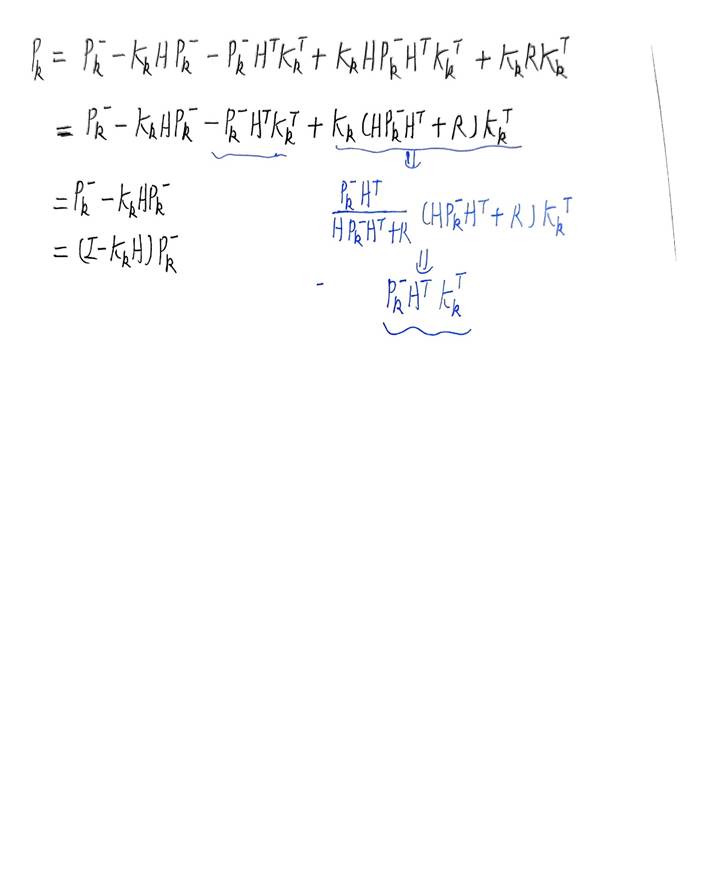 P_k = P_k^- - K_k H P_k^- - P_k^- H^T K_k^T + K_k H P_k^- H^T K_k^T + K_k R K_k^T
= P_k^- - K_k H P_k^- - P_k^- H^T K_k^T + K_k (H P_k^- H^T + R) K_k^T
⇓
= P_k^- - K_k H P_k^-
P_k^- H^T / H P_k^- H^T + R (H P_k^- H^T + R) K_k^T
= (I - K_k H) P_k^-
⇓
P_k^- H^T K_k^T